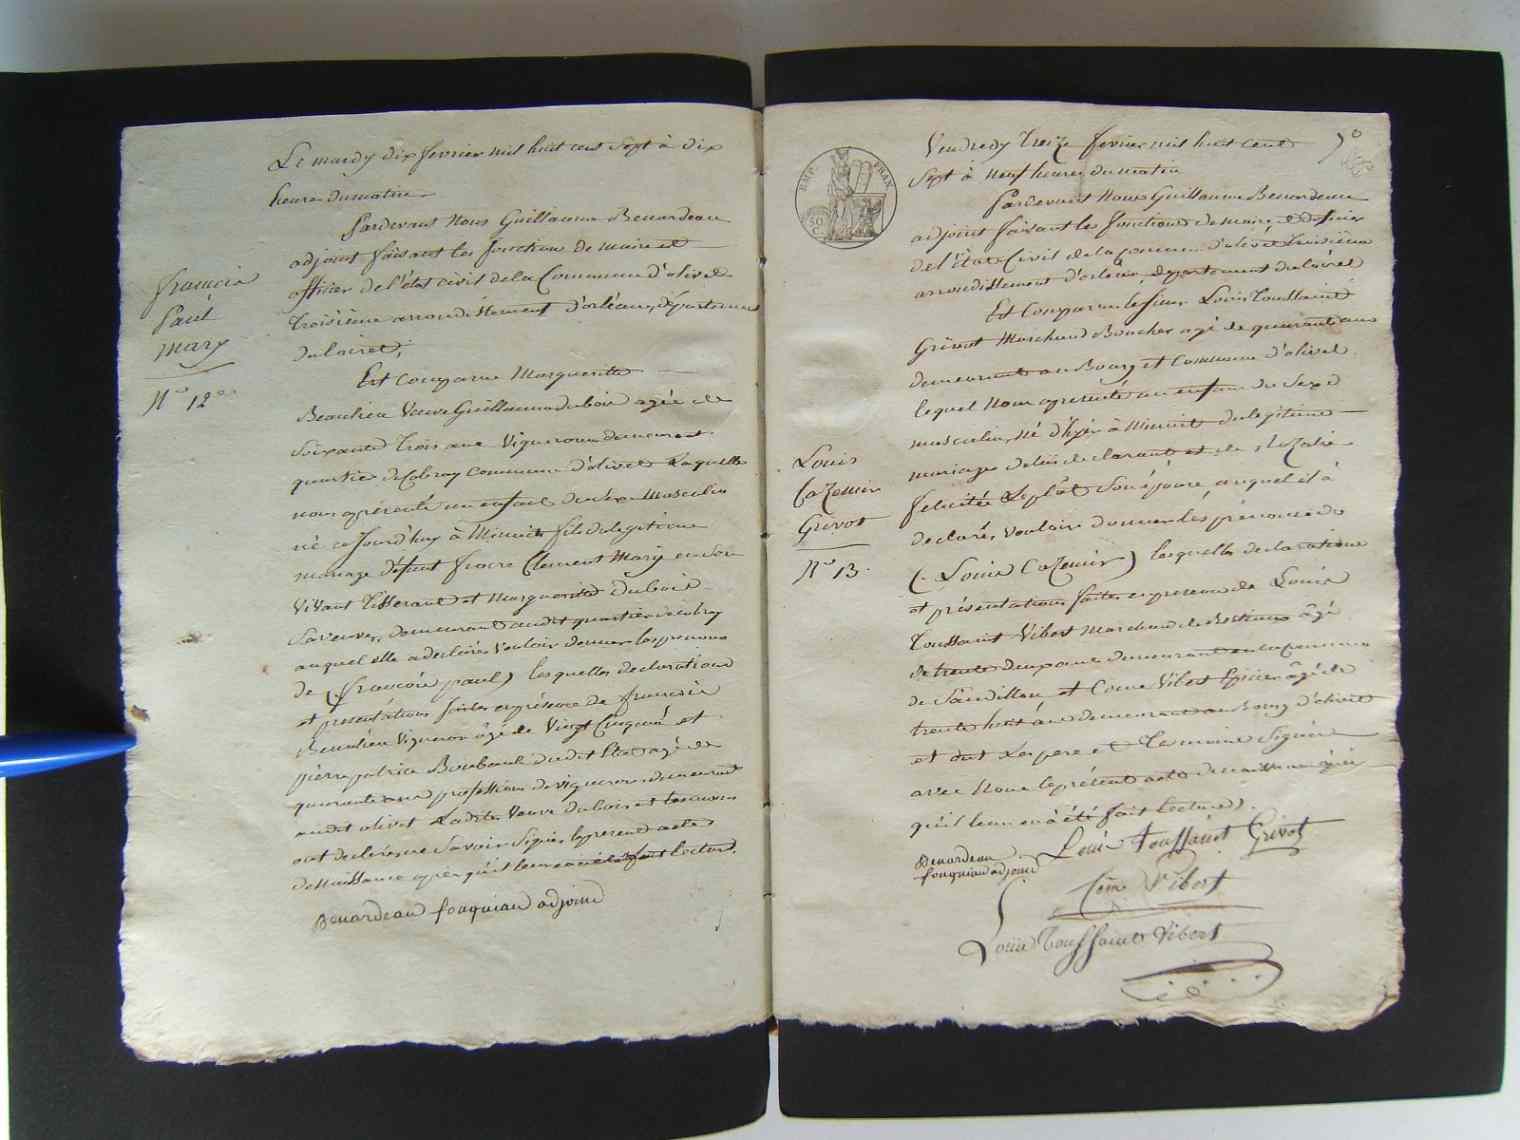 Le mardy dix fevrier mil huit cent sept à dix
heures du matin
Pardevant Nous Guillaume Benardeau
adjoint faisant les fonction de maire et
officier de l'état civil de la Commune d'olivet
troisième arrondissement d'orléans, département
du loiret,
Est comparue Marguerite
Beaulieu Veuve Guillaume dubois agée de
soixante trois ans Vigneronne demeurant
quartier de Colroy Commune d'olivet Laquelle
nous a présenté un enfant du sexe Masculin
né ce jourd'huy à Minuit fils du légitime
mariage défunt fiacre Clement Mary en son
Vivant tisserand et Marguerite dubois
sa veuve, demeurant audit quartier de colroy
auquel elle a declaré Vouloir donner les prenoms
de (françois paul) lesquelles declarations
et présentations faites en présence de françois
Beaulieu Vigneron âgé de Vingt Cinq ans et
pierre patrice Boubault dudit Etat agé de
quarante ans profession de vigneron demeurant
audit olivet Ladite Veuve dubois et temoins
ont declaré ne Savoir Signer le present acte
de Naissance après qu'il leur en a été fait lecture.
Benardeau fouquiau adjoint
françois
Paul
mary
N° 12
EMP. FRAN.
50 C.
7
Vendredy treize fevrier mil huit cent
Sept à neuf heures du matin
Pardevant Nous Guillaume Benardeau
adjoint faisant les fonctions de maire et officier
de l'État Civil de la commune d'olivet troisième
arrondissement d'orléans département du loiret
Est Comparu le sieur Louis Toussaint
Grivot Marchand Boucher agé de quarante ans
demeurant au Bourg et Commune d'olivet
lequel Nous a présenté un enfant du Sexe
masculin, Né d'hier à Minuit du légitime
mariage de lui declarant et de
felicité son épouse, auquel il a
declaré Vouloir donner les prénoms de
(Louis Cazemir) lesquelles declarations
et présentations faites en presence de Louis
Toussaint Vibert Marchand de Bestiaux âgé
de trente deux ans demeurant en la commune
de Sandillon et Come Vibert Epicier âgé de
trente huit ans demeurant au Bourg d'olivet
et ont Les pere et Temoins Signé
avec Nous le présent acte de naissance après
qu'il leur en a été fait lecture.
Benardeau
fouquiau adjoint
Louis Toussaint Grivot
Côme Vibert
Louis Toussaint Vibert
Louis
Cazemir
Grivot
N° 13.